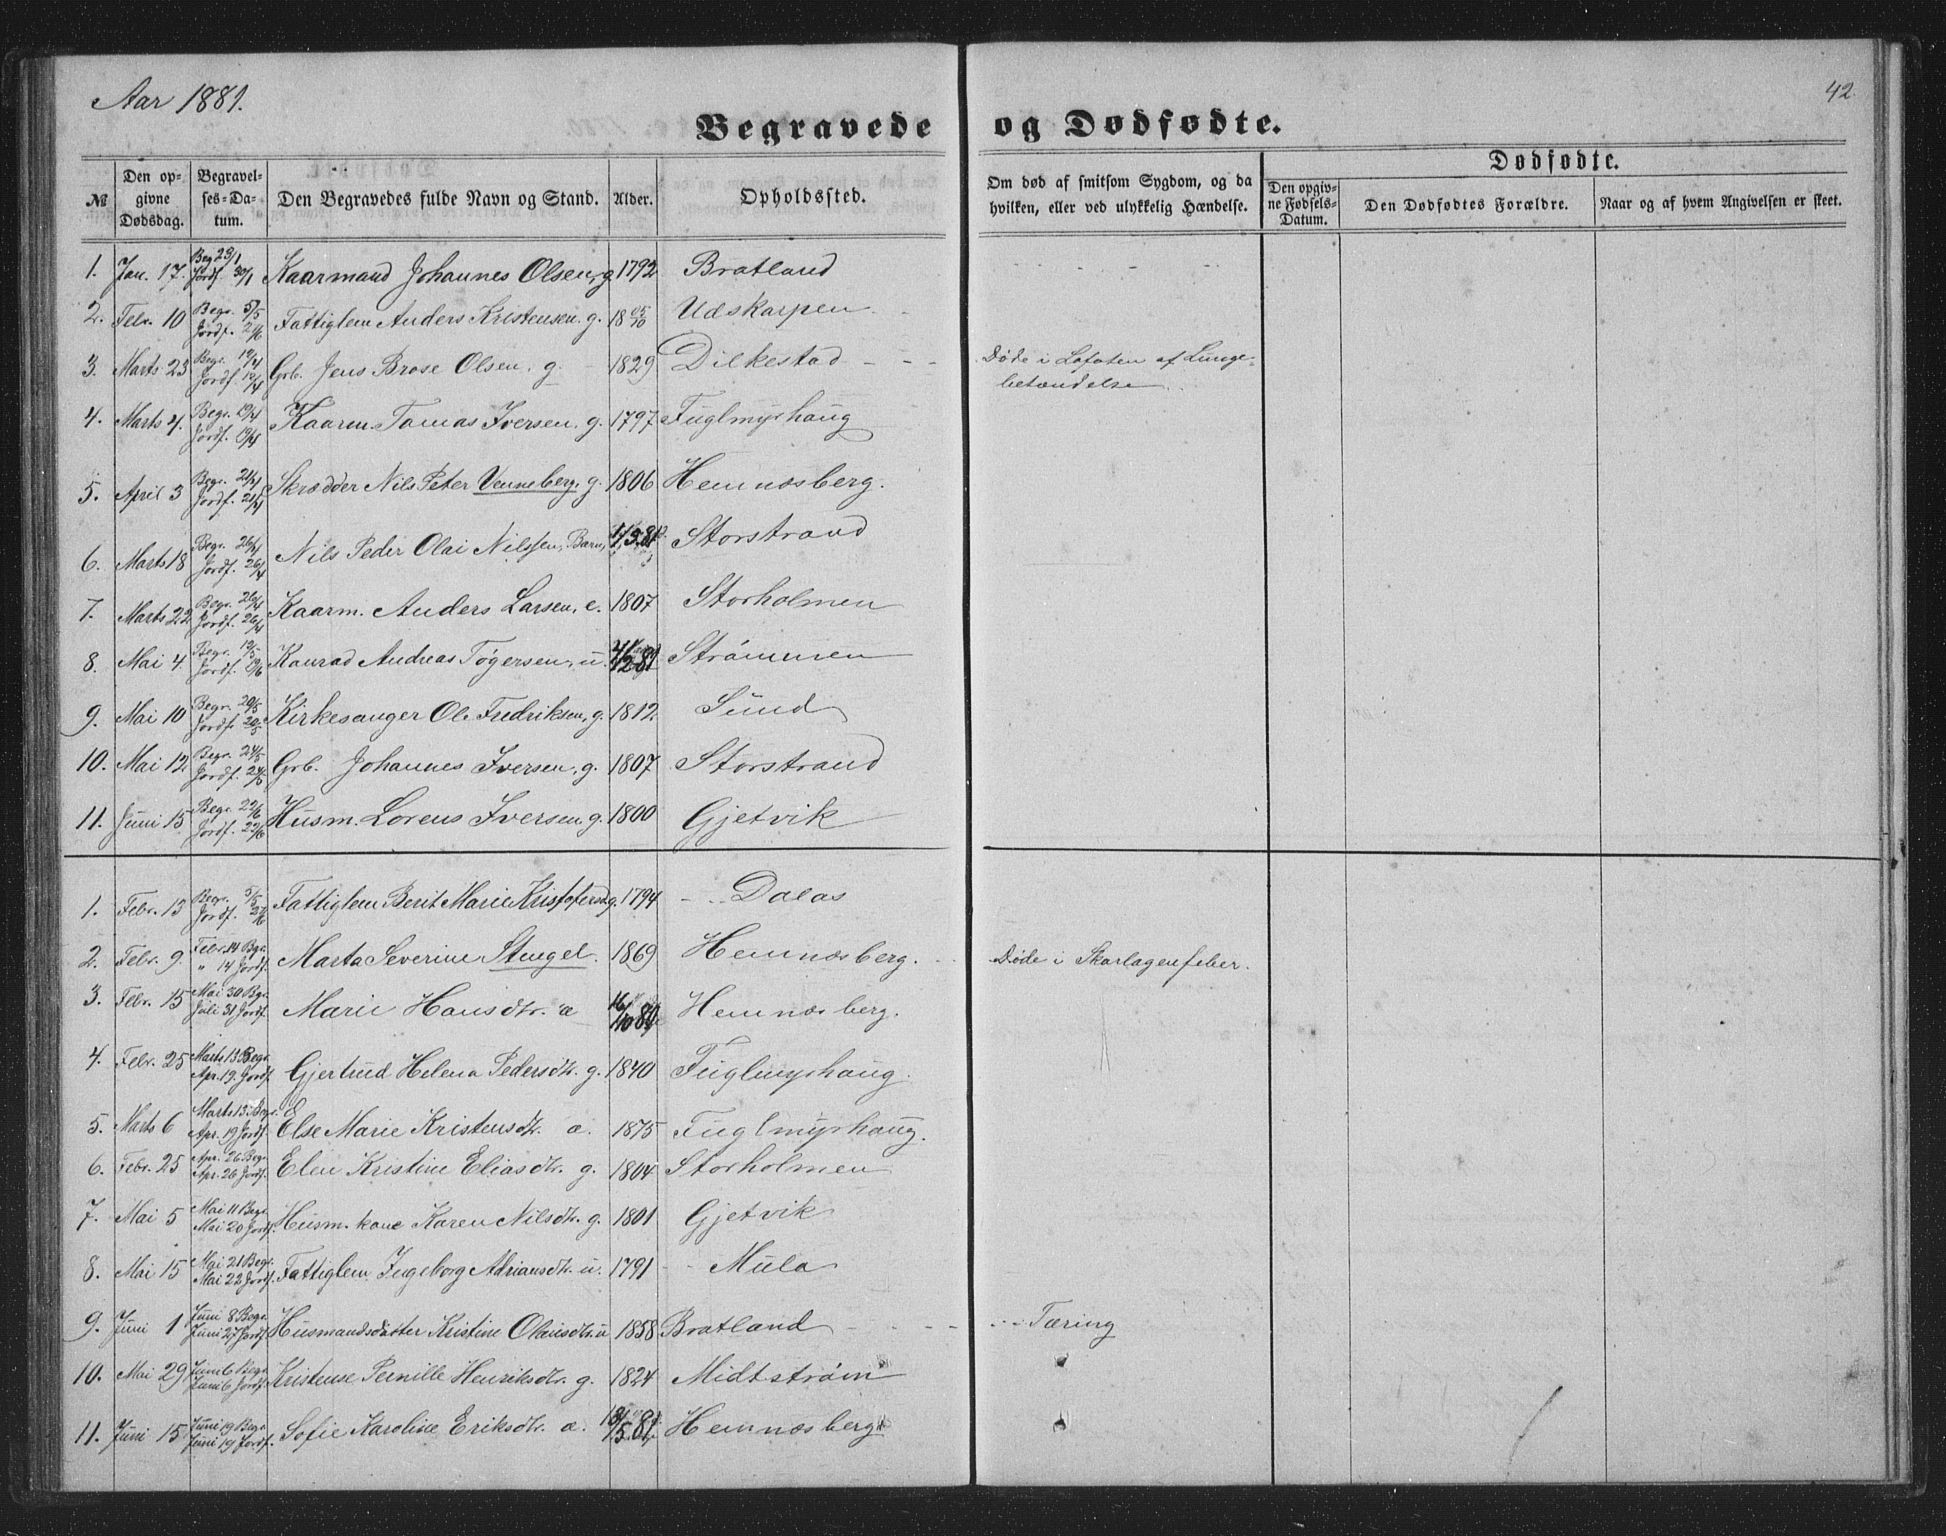 Aar 1881.
42
Begravede og Dødfødte.
№
Den opgivne Dødsdag.
Begravelses-Datum.
Den Begravedes fulde Navn og Stand.
Alder.
Opholdssted.
Om død af smitsom Sygdom, og da hvilken, eller ved ulykkelig Hændelse.
Dødfødte.
Den opgivne Fødsels-Datum.
Den Dødfødtes Forældre.
Naar og af hvem Angivelsen er skeet.
1. Jan. 17. Beg 23/1 Jordf. 30/1 Kaarmand Johannes Olsen, g. 1792 Bratland
2. Febr. 10 Begr. 5/5 Jordf. 2/6 Fattiglem Anders Kristensen. g. 18 05/10 Udskarpen
3. Marts 23 Begr. 12/4 Jordf. 12/4 Grb. Jens Brose Olsen. g. 1829 Dilkestad Døde i Lofoten af Lunge-
betændelse
4. Marts 4. Begr. 19/4 Jordf. 19/4 Kaarm. Tomas Iversen. g. 1797 Fuglmyrhaug
5. April 3 Begr. 21/4 Jordf. 21/4 Skrædder Nils Peter Venneberg. g. 1806 Hemnæsberg.
6. Marts 18 Begr. 26/4 Jordf. 26/4 Nils Peder Olai Nilssen, Barn, 1/3 81 Storstrand
7. Marts 22 Begr. 26/4 Jordf. 26/4 Kaarm. Anders Larsen, e. 1807 Storholmen
8. Mai 4. Begr. 19/5 Jordf. 19/6 Konrad Andreas Tøgersen, u. 21/2 81 Strømmen
9. Mai 10 Begr. 20/5 Jordf. 20/5 Kirkesanger Ole Fredriksen, g. 1812. Sund
10. Mai 12 Begr. 24/5 Jordf. 24/5 Grb. Johannes Iversen, g. 1807 Storstrand
11. Juni 15 Begr. 22/6 Jordf. 22/6 Husm. Lorens Iversen. g. 1800 Gjetvik
1. Febr. 13 Begr. 5/5 Jordf. 2/6 Fattiglem Berit Marie Kristofersd. g. 1794 Dalas
2. Febr. 9. Febr. 14 Begr. " 14 Jordf. Marta Severine Stengel. 1869 Hemnæsberg. Døde i Skarlagenfeber.
3. Febr. 15 Mai 30 Bgr. Juli 31 Jordf. Marie Hansdtr. æ 16/10 80 Hemnæsberg.
4. Febr. 25 Marts 13 Begr. Apr. 19. Jordf. Gjertrud Helena Pedersdtr. g. 1840 Fuglmyrhaug.
5. Marts 6 Marts 13 Begr. Apr. 19 Jordf. Else Marie Kristensdtr. æ. 1875 Fuglmyrhaug.
6. Febr. 25 Apr. 26 Begr. Apr. 26 Jordf. Elen Kristine Eliasdtr. g. 1804 Storholmen
7. Mai 5 Mai 11 Begr. Mai 20 Jordf. Husm. kone Karen Nilsdtr. g. 1801 Gjetvik
8. Mai 15 Mai 21 Begr. Mai 22 Jordf. Fattiglem Ingeborg Adriansdtr. u. 1791 Mula
9. Juni 1 Juni 8 Begr. Juni 27 Jordf. Husmandsdatter Kristine Olausdtr. u 1858 Bratland Tæring
10. Mai 29 Juni 6 Begr. Juni 6 Jordf. Kristense Pernille Henriksdtr. g. 1824 Midtstrøm
11. Juni 15 Juni 19 Begr. Juni 19 Jordf. Sofie Karoline Eriksdtr. æ. 18/5 81 Hemnæsberg